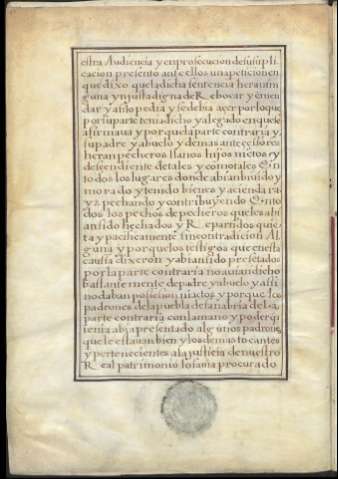 estra Audiencia y enprosecucion desusupli
cacion presento ante ellos una peticion en
que dixo que la dicha sentencia hera nin
guna y injusta digna de Rebocar y enmen
dar y ansi lo pedia y se debia açer por lo que
por su parte tenia dicho y alegado en que le
afirmaua y porque la parte contraria y
su padre y abuelo y demas antecessores
heran pecheros llanos hijos nietos y
descendiente de tales y como tales en
todos los lugares donde abian bivido y
morado y tenido bienes y acienda ra
yz pechando y contribuyendo en to
dos los pechos de pecheros que les abi
an sido hechados y Repartidos quie
ta y pacificamente sin contradicion al
guna y porque los testigos que en esta
caussa dixeron y abian sido presentados
por la parte contraria no auian dicho
bastante mente de padre y abuelo y assi
no daban posesion ni actos y porque los
padrones de la puebla de sanabria de la
parte contraria con la mano y poder que
tenia abia presentado algunos padrones
que le estauan bien y los demas tocantes
y pertenecientes a la justicia de nuestro
Real patrimonio lo auia procurado